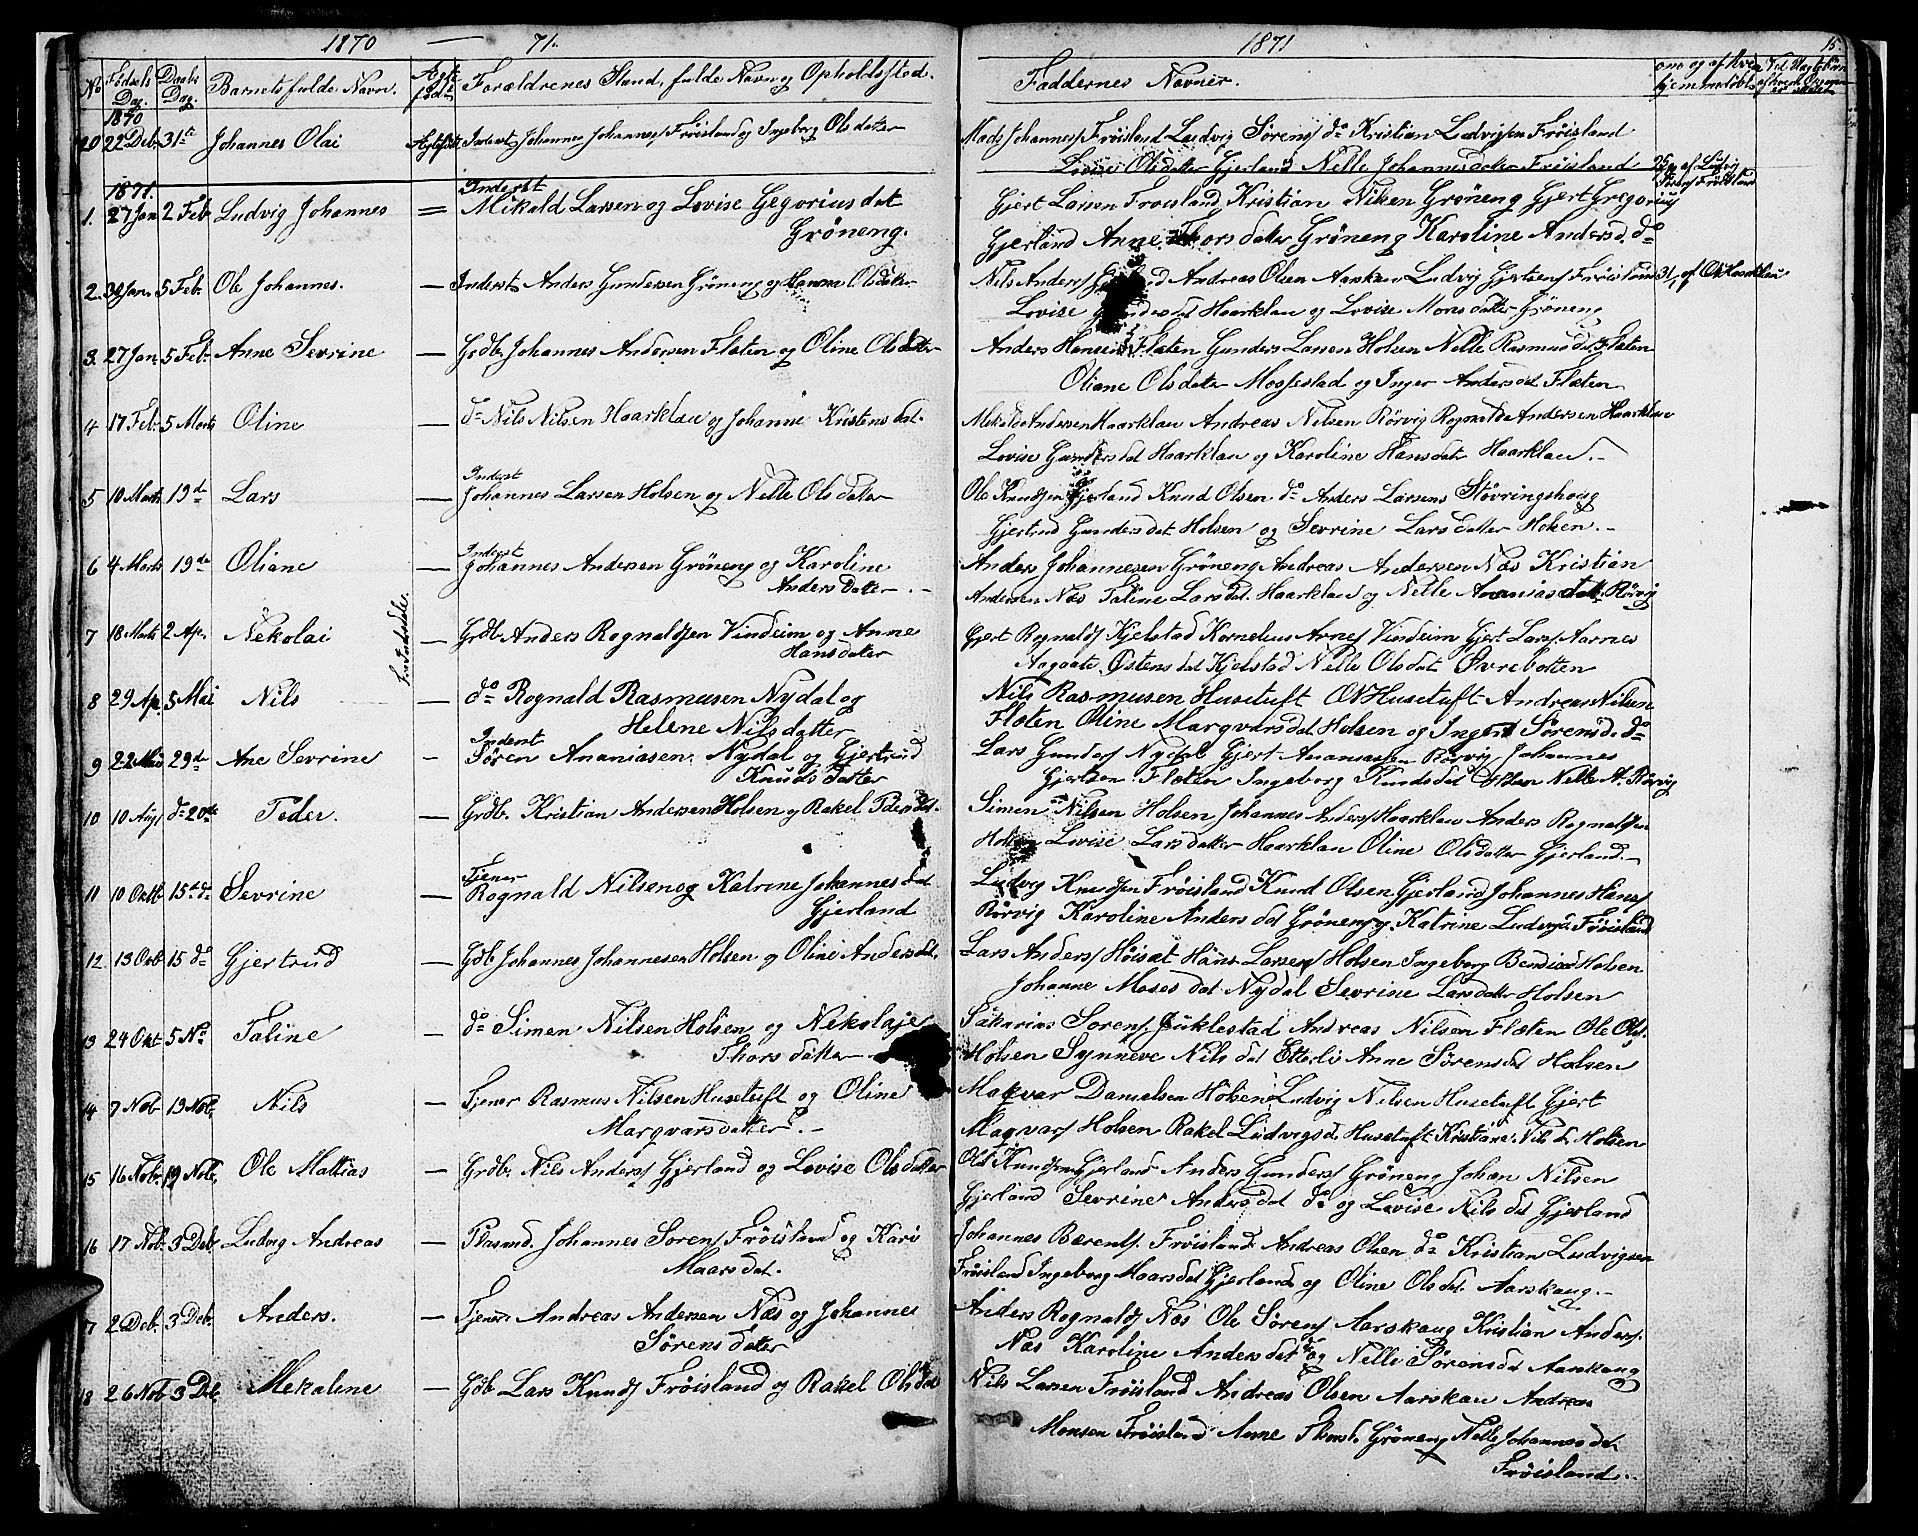 1870 — 71. 1871 15.
No Fødsels Dag. Daabs Dag. Barnets fulde Navn. Ægte født Forældrenes Stand, fulde Navn og Opholdssted. Faddernes Navner. om og af hvem hjemmedøbt
1870
20 22 Deb. 31te Johannes Olai Ægtefødt Inderst Johannes Johannes/ Frøisland og Ingeborg Olsdatter Mads Johannes/ Frøisland Ludvig Sørens/ do Kristian Ludvigsen Frøisland
Lovise Olsdatter Gjerland Nelle Johannesdatter Frøisland
1871.
Inderst
1. 27 Jan 2 Feb Ludvig Johannes = Mikald Larsen og Lovise Gegorius dat Gjert Larsen Frøisland Kristian Nilsen Grøneng Gjert Gregorius/
Grøneng. Gjerland Anne Thors datter Grøneng Karoline Andersd. do
2. 30 Jan. 5 Feb. Ole Johannes. — Inderst Anders Gundersen Grøneng og Hanna Olsdatter Nils Anders/ Andreas Olsen Aarskau Ludvig Gjertsen/ Frøisland 31/1 af Ols Haarklau
Lovise Haarklau og Lovise Monsdatter Grøneng
3. 27 Jan 5 Feb. Anne Sevrine — Grdb. Johannes Andersen Flæten og Oline Olsdatter Anders Hansen Flæten Gunders Larsen Holsen Nelle Rasmusdat Flæten
Oliane Olsdatter Mossestad og Inger Andersdat Flæten
4 17 Feb. 5 Marts Oline — do Nils Nilsen Haarklau og Johanne Kristensdat. Mikald Andersen Haarklau Andreas Nilsen Rørvig Rognald Andersen Haarklau
Lovise Gundersdat Haarklau og Karoline Hansdat Haarklau.
Inderst
5 10 Marts 19de Lars — Johannes Larsen Holsen og Nelle Olsdatter Ole Knudsen Gjerland Knud Olsen do Anders Larsens Støvringshoug
Gjertrud Gundersdat Holsen og Sevrine Larsdatter Holsen.
Inderst
6 4 Marts 19de Oliane — Johannes Andersen Grøneng og Karoline Anders Johannesen Grøneng Andreas Andersen Næs Kristian
Anders Datter. Andersen Næs Taline Larsdat. Haarklau og Nelle Ananiasdatt. Rørvig
7 18 Marts 2 Ap. Nekolai — Grdb. Anders Rognaldsen Vindeim og Anne Gjert Rognalds/ Kjelstad Kornelius Arnes/ Vindeim Gjert Lars/ Aarnes
Hansdatter Aagaate Østensdat Kjelstad Nelle Olsdat Øvrebotten
8 29 Ap. 5 Mai Nils — do Rognald Rasmusen Nydal og Nils Rasmusen Husetuft Husetuft Andreas Nilsen
Helene Nilsdatter Flæten Oline Marqvarsdat Holsen og Inger Sørensd. do
Inderst
9 22 Mai 29de Ane Sevrine - Søren Ananiasen Nydal og Gjertrud Lars Gunders/ Nydal Gjert Ananiassen Rørvig Johannes
Knuds Datter Gjertsen Flæten Ingeborg Knudsdat Holsen Nelle A. Rørvig
10 10 Aug. do 20de Peder. — Grdb. Kristian Andersen Holsen og Rakel Pdersdat. Simen Nilsen Holsen Johannes Anders/ Haarklau Anders Rognaldsen
Lovise Larsdatter Haarklau Oline Olsdatter Gjerland.
Tjener
11 10 Octb. 15de do Sevrine — Rognald Nilsen og Katrine Johannes dat Ludvig Knudsen Frøisland Knud Olsen Gjerland Johannes Hans/
Gjerland Rørvig Karoline Andersdat Grøneng og Katrine Ludvigsd. Frøisland
12 13 Octb. 15 do Gjertrud — Gdb Johannes Johannesen Holsen og Oline Andersdat. Lars Anders/ Høisæt Hans Larsen/ Holsen Ingeborg Bendixd Holsen
Johanne Mosesdat Nydal Sevrine Larsdatter Holsen
13 24 Okt 5 No. Taline — do Simen Nilsen Holsen og Nekolaje Sakarias Sorens/ Juklestad Andreas Nilsen Flæten Ole Ols/
Thors datter Holsen Synneve Nilsdat Etterli Anne Sørensdat Holsen
14 7 Nob. 19 Nob. Nils — Tjener Rasmus Nilsen Husetuft og Oline Makvar Danielsen Holsen Ludvig Nilsen Husetuft Gjert
Marqvarsdatter. Maqvars/ Holsen Rakel Ludvigsd. Husetuft Kristiane Nilsd. Holsen
15 16 Nob. 19 Nob. Ole Mattias — Grdb. Nils Anders/ Gjerland og Lovise Olsdatter Ole Knudsen Gjerland Anders Gunders/ Grøneng Johan Nilsen
Gjerland Sevrine Andersdat do og Lovise Nilsdat Gjerland
16 17 Nob. 3 Deb. Ludvig Andreas — Plasmd. Johannes Sorens/ Frøisland og Kari Johannes Bærents/ Frøisland Andreas Olsen do Kristian Ludvigsen
Maarsdat. Frøisland Ingeborg Maarsdat Gjerland og Oline Olsdat Aarskaug.
17 2 Deb. 3 Deb. Anders. — Tjener Andreas Andersen Næs og Johannes Anders Rognalds/ Næs Ole Sørens/ Aarskaug Kristian Anders/
Sørens datter Næs Karoline Andersdat og Nelle Sørensdat Aarskaug
18 26 Nob 3 Deb. Mekaline — Gdb Lars Knuds/ Frøisland og Rakel Olsdat Nils Larsen Frøisland Andreas Olsen Aarskau Andreas
Monsen Frøisland Anne Thorsd. Grøneng Nelle Johannesdat
Frøisland.